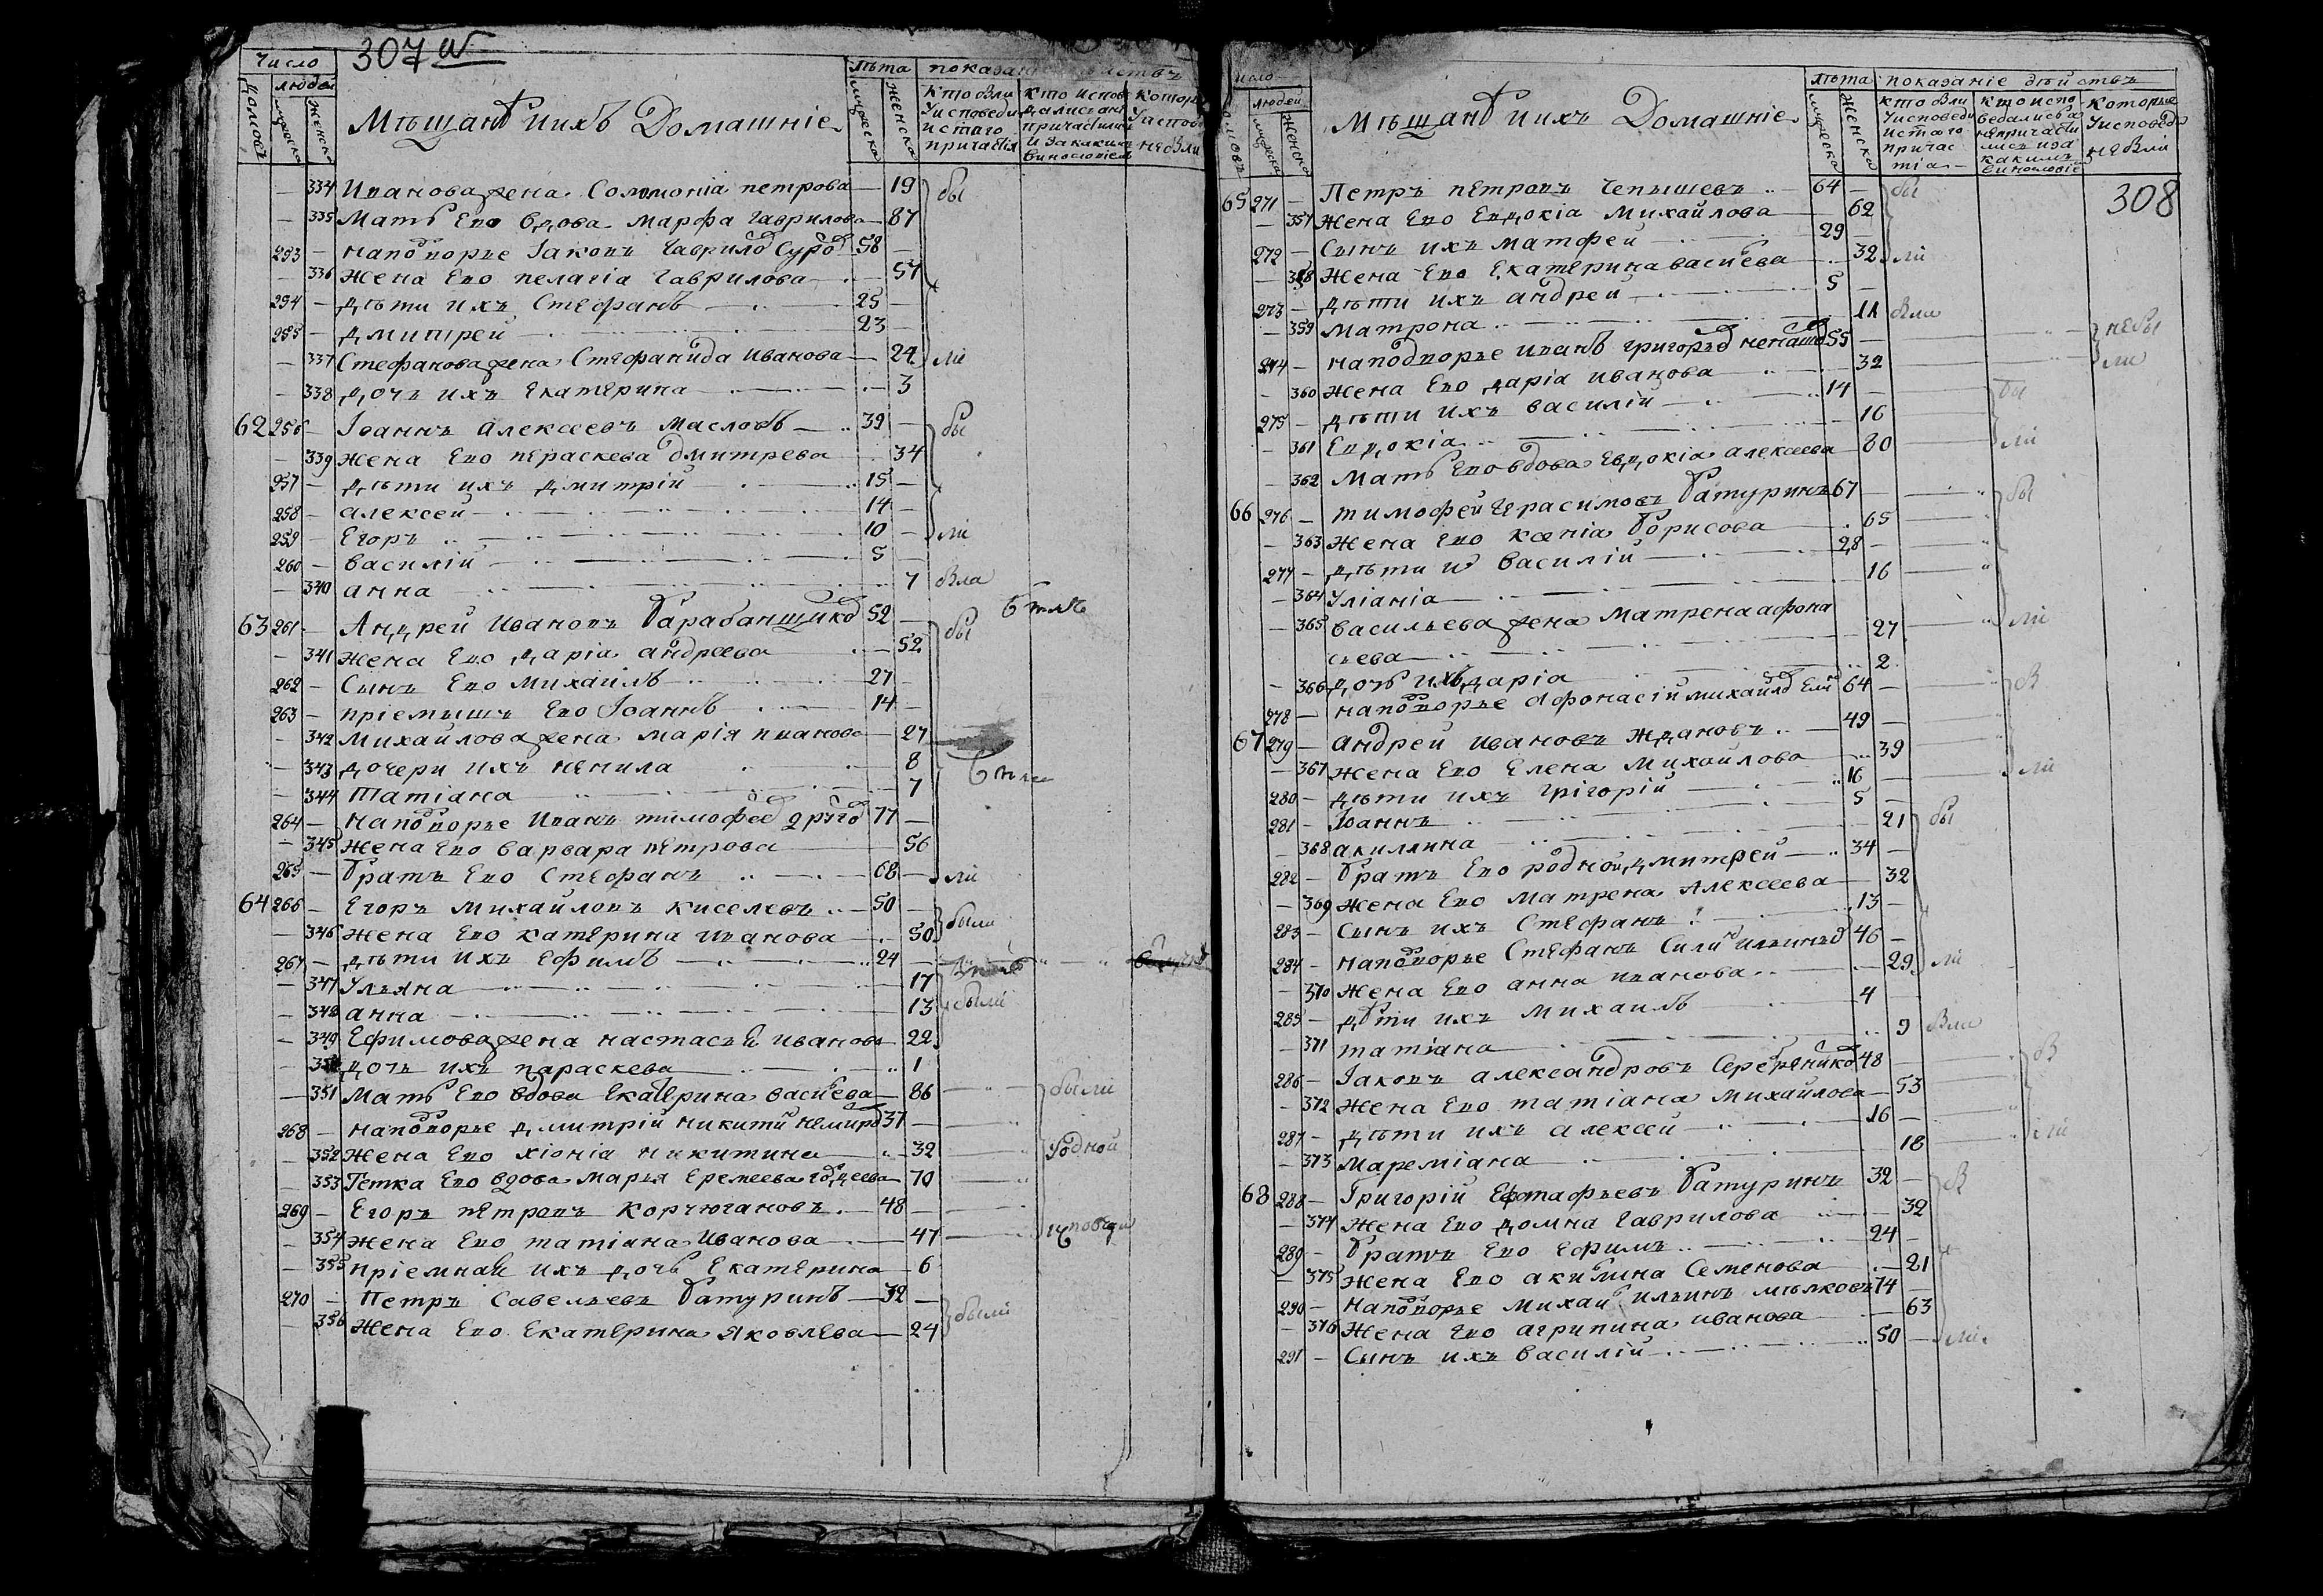 307 об
Число
людей
Домовъ
мужеска
женска
Мѣщанъ и ихъ Домашніе
лѣта
мужеска
женска
кто были
у исповеди
и стаго
причастія
334 Иванова жена Соломоніа петрова 19 бы
335 Мать Ево вдова Марфа Гаврилова 87
253 на подворье Іаковъ Гаврило 58
336 Жена Ево пелагіа Гаврилова 57
254 дѣти ихъ Стефанъ 25
255 дмитрей 23
337 Стефанова жена Стефанида Иванова 24 ли
338 дочь ихъ Екатерина 3
62 256 Іоаннъ Алексеевъ Масловъ 39 бы
339 Жена Ево пераскева дмитрева 34
257 дѣти ихъ дмитрій 15
258 алексей 14
259 Егоръ 10 ли
260 василій 5
340 анна 7 была
63 261 Андрей Ивановъ Барабанщико 52 бы
341 Жена Ево даріа андреева 52
262 Сынъ Ево михаилъ 27
263 пріемышъ Ево Іоаннъ 14
342 Михайлова жена марія иванова 27
343 дочери ихъ ненила 8
344 татіана 7
264 на подворье Иванъ тимофее 77
345 Жена Ево варвара петрова 56
265 братъ Ево Стефанъ 68 ли
64 266 Егоръ михайловъ киселевъ 50
346 жена Ево катерина иванова 50 были
267 дѣти ихъ Ефимъ 24
347 Ульяна 17
348 анна 13 были
349 Ефимова жена настасья иванова 22
350 дочь ихъ параскева 1
351 Мать Ево вдова Екатерина васиева 86 были
268 на подворье дмитрій никити немиро 37
352 жена Ево хіоніа никитина 32
353 Тетка Ево вдова Марья Еремеева 70
269 Егоръ петровъ корчюгановъ 48
354 жена Ево татіана Иванова 47
355 пріемная ихъ дочь Екатерина 6
270 Петръ Савельевъ батуринъ 32 были
356 Жена Ево Екатерина Яковлева 24
308
Число
людей
мужеска
женска
Мѣщанъ и ихъ Домашніе
лѣта
мужеска
женска
показаніе действъ
кто были
у исповеди
и стаго
причас
тіа
кто испо
ведалися а
непричасти
лись и за
какимъ
винословіе
которые
у исповеди
не были
65 271 Петръ петровъ Чепышевъ 64 бы
357 Жена Ево Евдокіа Михайлова 62
272 Сынъ ихъ матфей 29
358 Жена Ево Екатерина васиева 32 ли
273 дѣти ихъ андрей 5
359 матрона 11 была
274 на подворье иванъ григорье 55 небы
360 Жена Ево даріа иванова 32 ли
275 дѣти ихъ василій 14 бы
361 Евдокіа 16
362 Мать Ево вдова Евдокіа алексеева 80 ли
66 276 тимофей герасимовъ батуринъ 67 бы
363 Жена Ево ксеніа борисова 65
277 дѣти и василій 28
364 Уліаніа 16
365 васильева жена матрена афона
сьева 27 ли
366 дочь ихъ даріа 2
278 на подворье Афонасій михайло 64
67 279 андрей ивановъ ждановъ 49
367 жена Ево Елена Михайлова 39
280 дѣти ихъ григорій 16 ли
281 Іоаннъ 5
368 акилина 21 бы
282 братъ Ево родной дмитрей 34
369 жена Ево матрена Алексеева 32
283 Сынъ ихъ Стефанъ 13
284 на подворье Стефанъ Сили 46
370 жена Ево анна иванова 29 ли
285 дѣти ихъ михаилъ 4
371 татіана 9 была
286 Іаковъ александровъ Серебренико 48
372 жена Ево татіана михайлова 53
287 дѣти ихъ алексей 16
373 Мареміана 18 ли
68 288 Григорій Ефтафьевъ батуринъ 32
374 жена Ево домна гаврилова 32
289 братъ Ево Ефимъ 24
375 жена Ево акилина Семенова 21
290 на подворье михаи ильинъ мѣлковъ 74
376 жена Ево агрипина иванова 63
291 Сынъ ихъ василій 50 ли